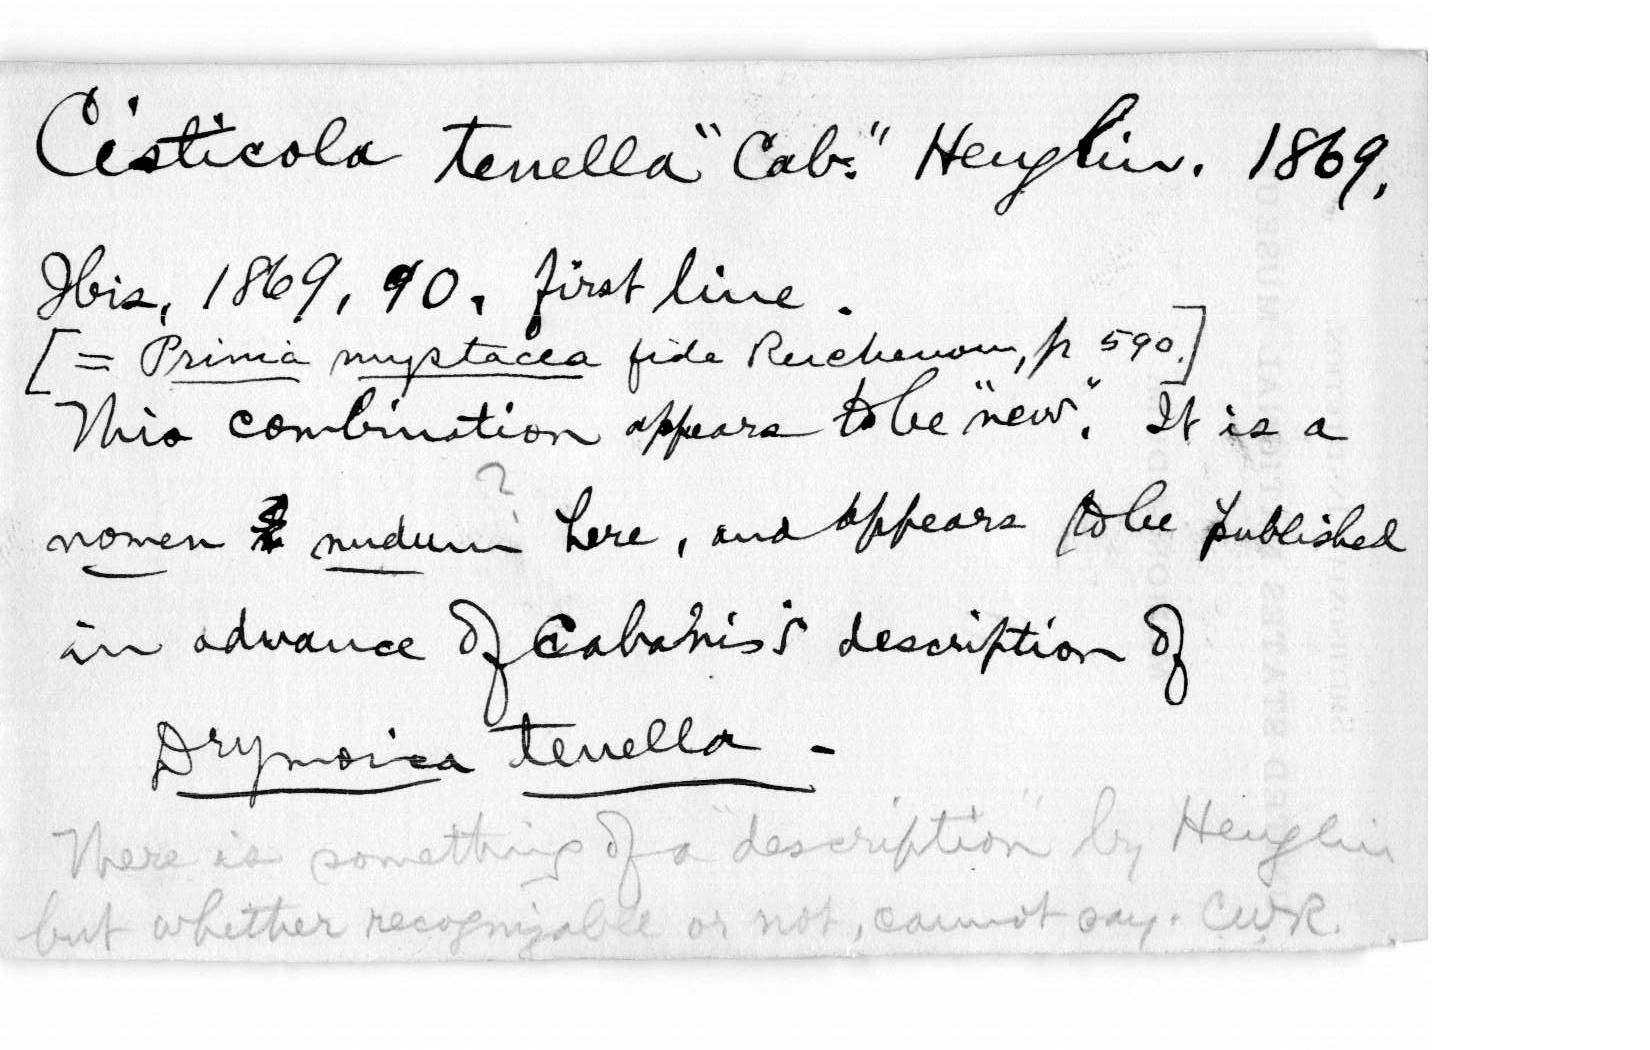 Cisticola tenella "Cab." Heuglin. 1869.
Ibis, 1869, 90, first line.
[= Prinia mystacea fide Reichenow, p 590.]
This combination appears to be "new". It is a
?
nomen nudum here, and appears to be published
in advance of Cabanis's description of
Drymoica tenella -
There is something of a "description" by Heuglin
but whether recognizable or not, cannot say. CWR.